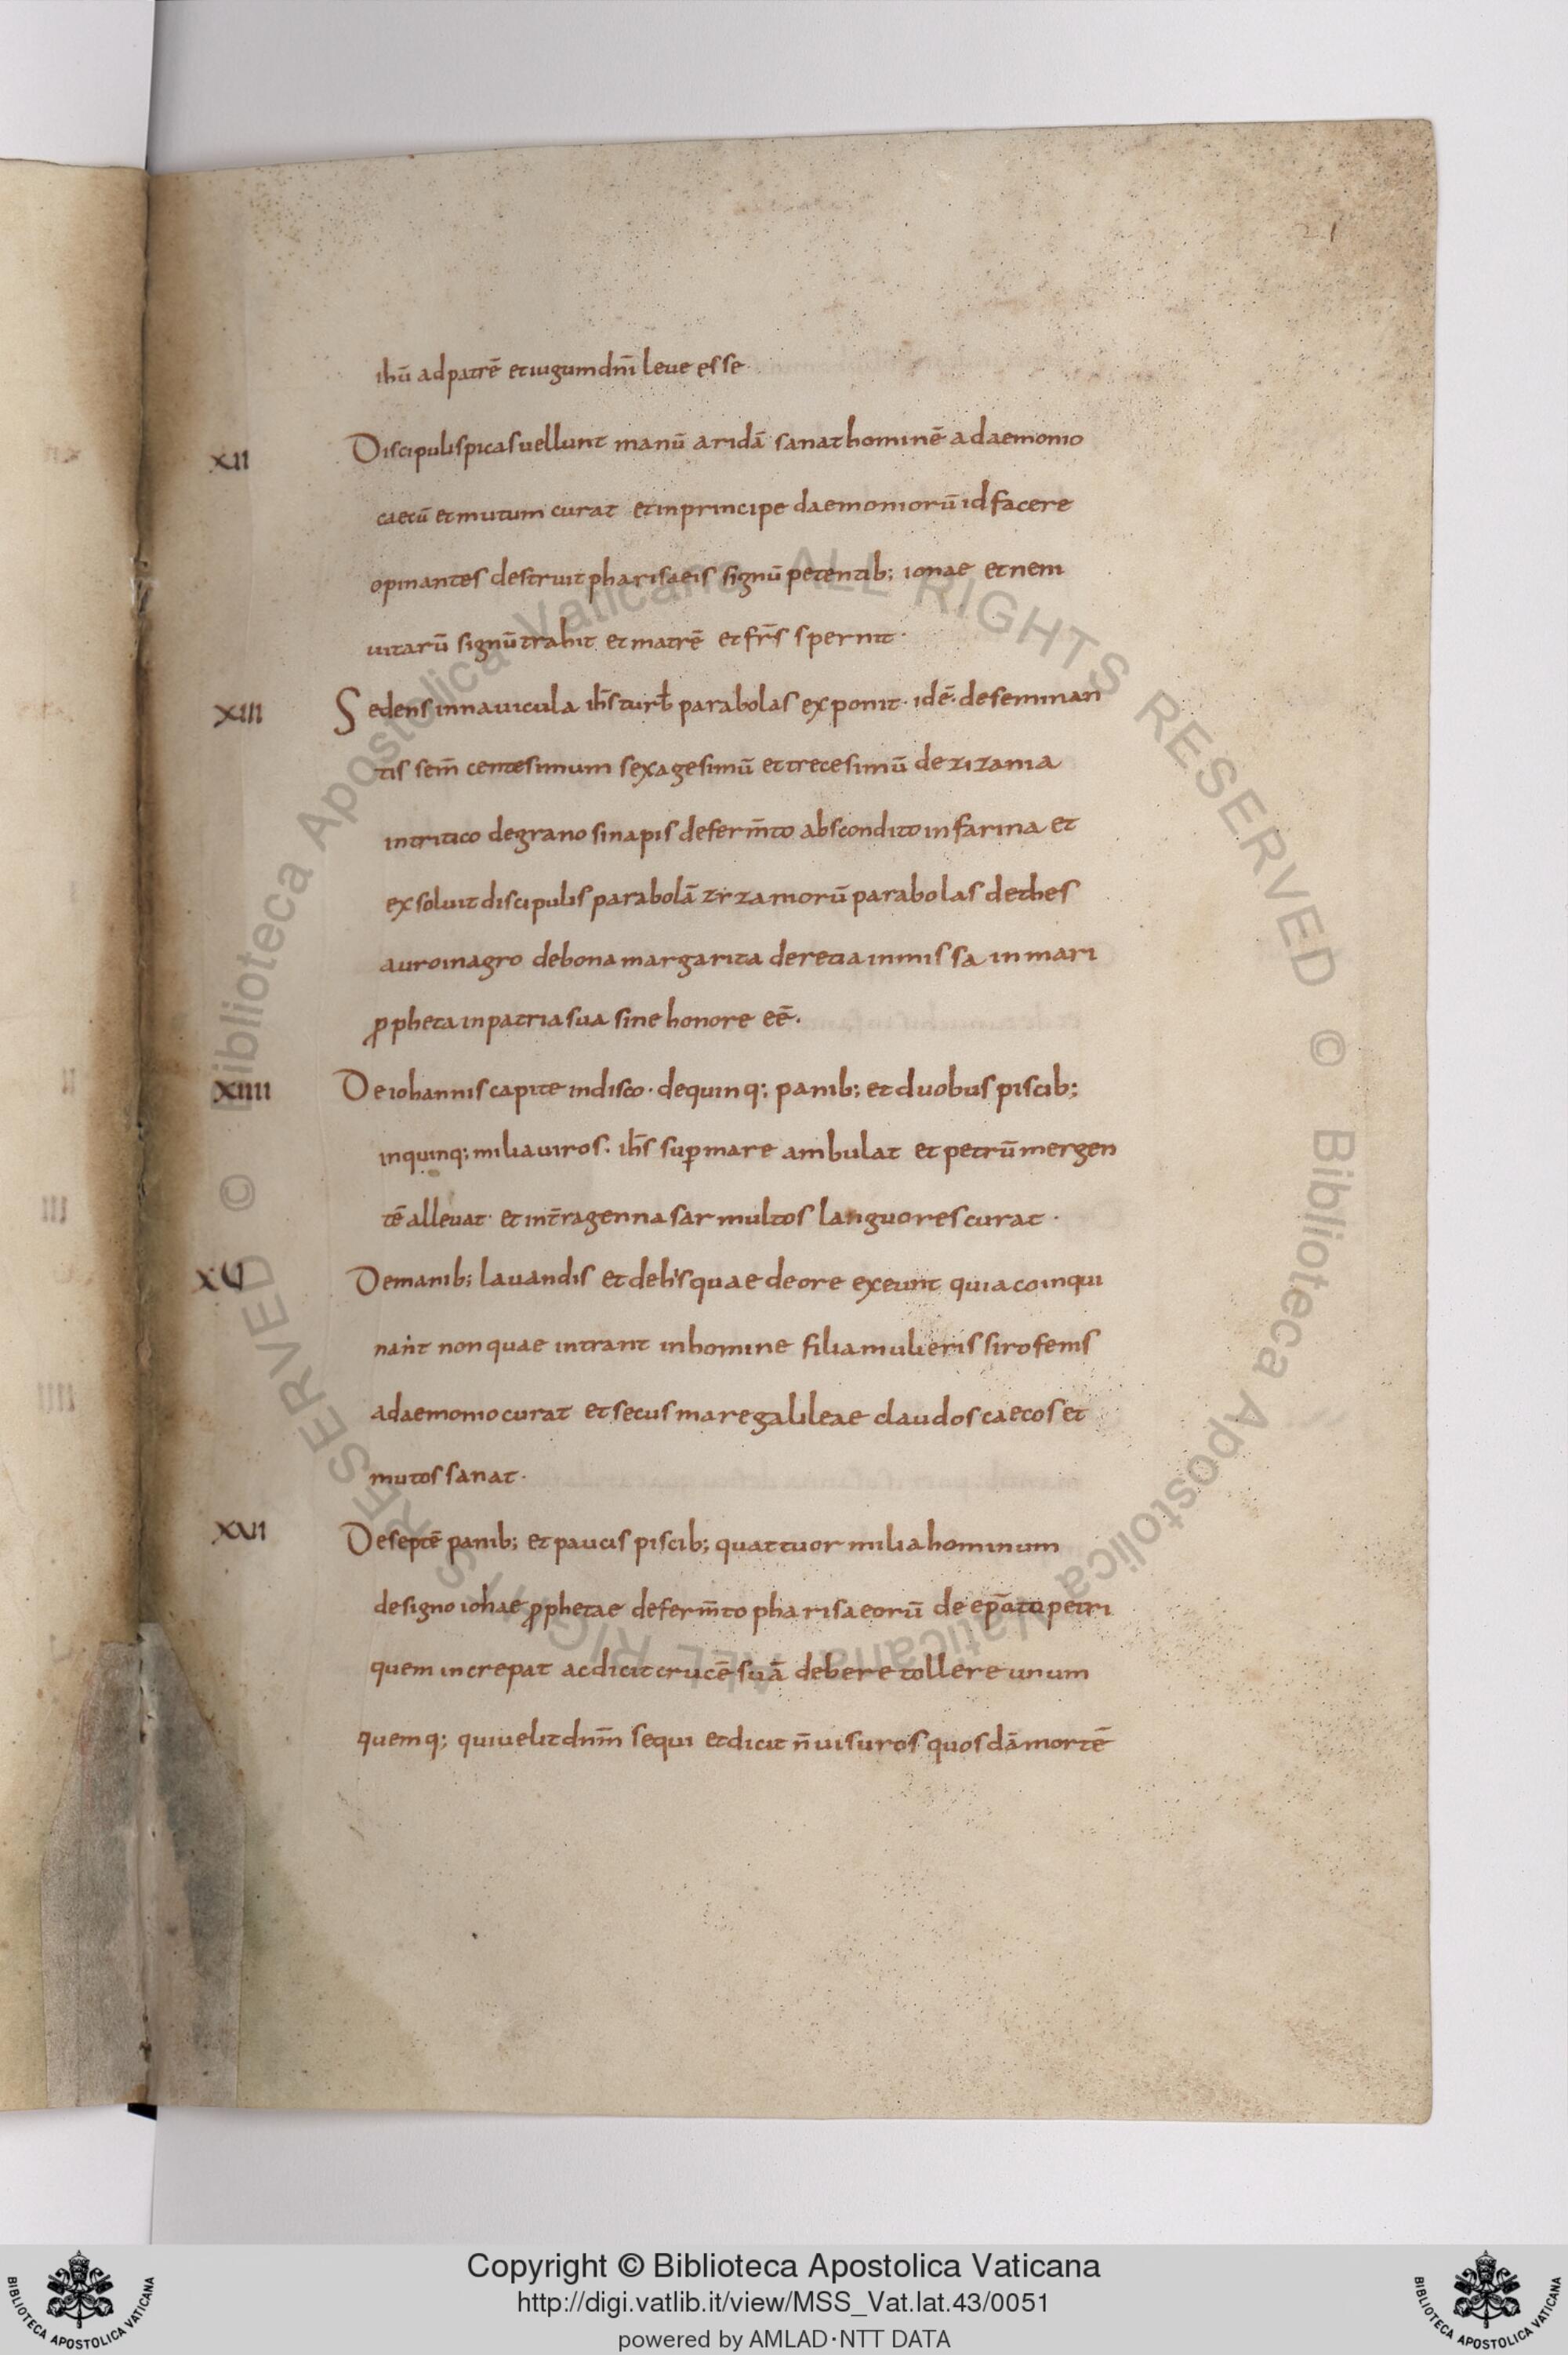 21
ihū ad patrē et iugum dn̄i leue esse
XII Discipuli spicas uellunt manū aridā sanat hominē a daemonio
caecū et mutum curat et in principe daemoniorū id facere
opinantes destruit pharisaeis signū petentib; ionae et nem
uitarū signū trahit et matrē et fr̄s spernit·
XIII Sedens in nauicula ih̄s turƀ parabolas exponit· idē· de seminan
tis sem̄ centesimum sexagesimū et trecesimū de zizania
in tritico de grano sinapis de ferm̄to abscondito in farina et
exsoluit discipulis parabolā zizaniorū parabolas de thes
auro in agro de bona margarita de retia inmissa in mari
ꝓpheta in patria sua sine honore eē·
XIIII De iohannis capite in disco· de quinq; panib; et duobus piscib;
in quinq; milia uiros· ih̄s suꝑ mare ambulat et petrū mergen
tē alleuat· et in t̄ra gennasar multos languores curat·
XV De manib; lauandis et de his quae de ore exeunt quia coinqui
nant non quae intrant in homine filia mulieris sirofenis
a daemonio curat et secus mare galileae claudos caecos et
mutos sanat·
XVI De septē panib; et paucis piscib; quattuor milia hominum
de signo ionae ꝓphetae de ferm̄to pharisaeorū de ep̄atu petri
quem increpat ac dicit crucē suā debere tollere unum
quemq; qui uelit dn̄m sequi et dicit n̄ uisuros quosdā mortē
© Biblioteca Apostolica Vaticana ALL RIGHTS RESERVED © Biblioteca Apostolica Vaticana ALL RIGHTS RESERVED
Copyright © Biblioteca Apostolica Vaticana
http://digi.vatlib.it/view/MSS_Vat.lat.43/0051
powered by AMLAD·NTT DATA
BIBLIOTECA APOSTOLICA VATICANA
BIBLIOTECA APOSTOLICA VATICANA